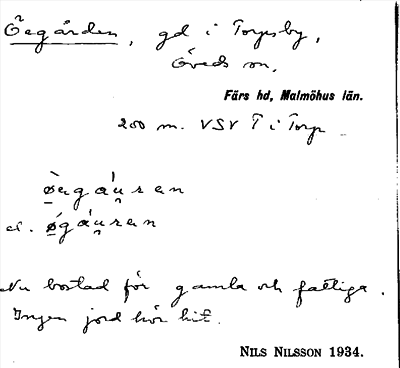 Öegården, gd i Torpsby,
Öveds sn,
Färs hd, Malmöhus län.
200 m. VSV T i Torp
el.
Nu bostad för gamla och fattiga.
Ingen jord hör hit.
NILS NILSSON 1934.